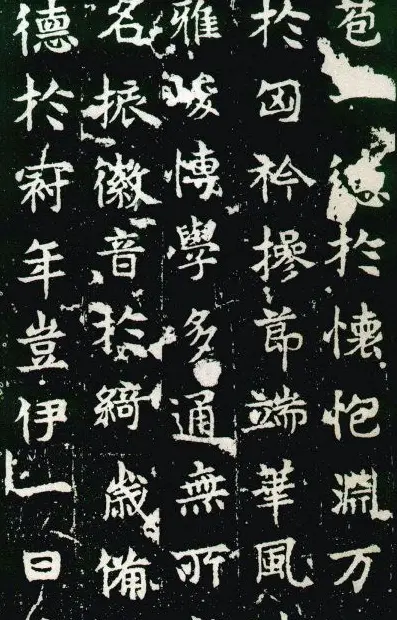 苞德於懷抱淵万
於匈衿操節端華風
雅峻慱學多通無所
名振徽音於綺歲備
德於冠年豈伊一日